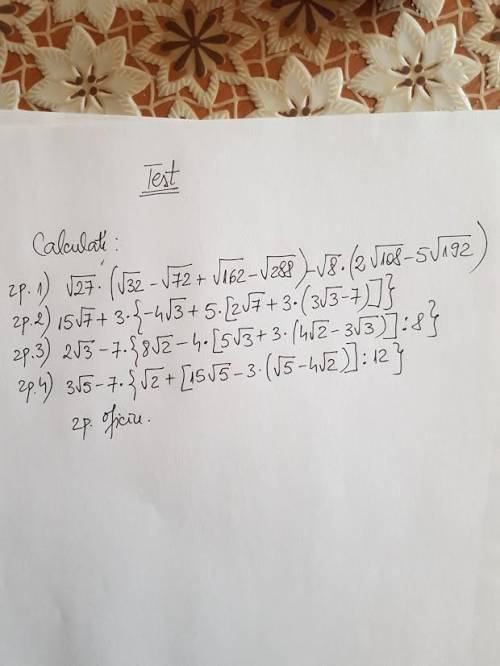 Test
Calculați:
2p. 1) √27 · (√32 - √72 + √162 - √288) - √8 · (2√108 - 5√192)
2p. 2) 15√7 + 3 · {-4√3 + 5 · [2√7 + 3 · (3√3 - 7)]}
2p. 3) 2√3 - 7 · {8√2 - 4 · [5√3 + 3 · (4√2 - 3√3)] : 8}
2p. 4) 3√5 - 7 · {√2 + [15√5 - 3 · (√5 - 4√2)] : 12}
2p. oficiu.